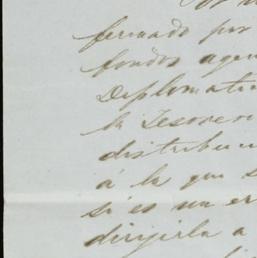 fernado por
fondos agen
Diplomati
la Tesore
distribu
á la que s
si es un er
dirijirla a